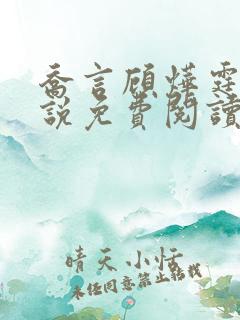 喬言顧燁霆
說免費閱讀
晴天小恬
未经同意禁止转载